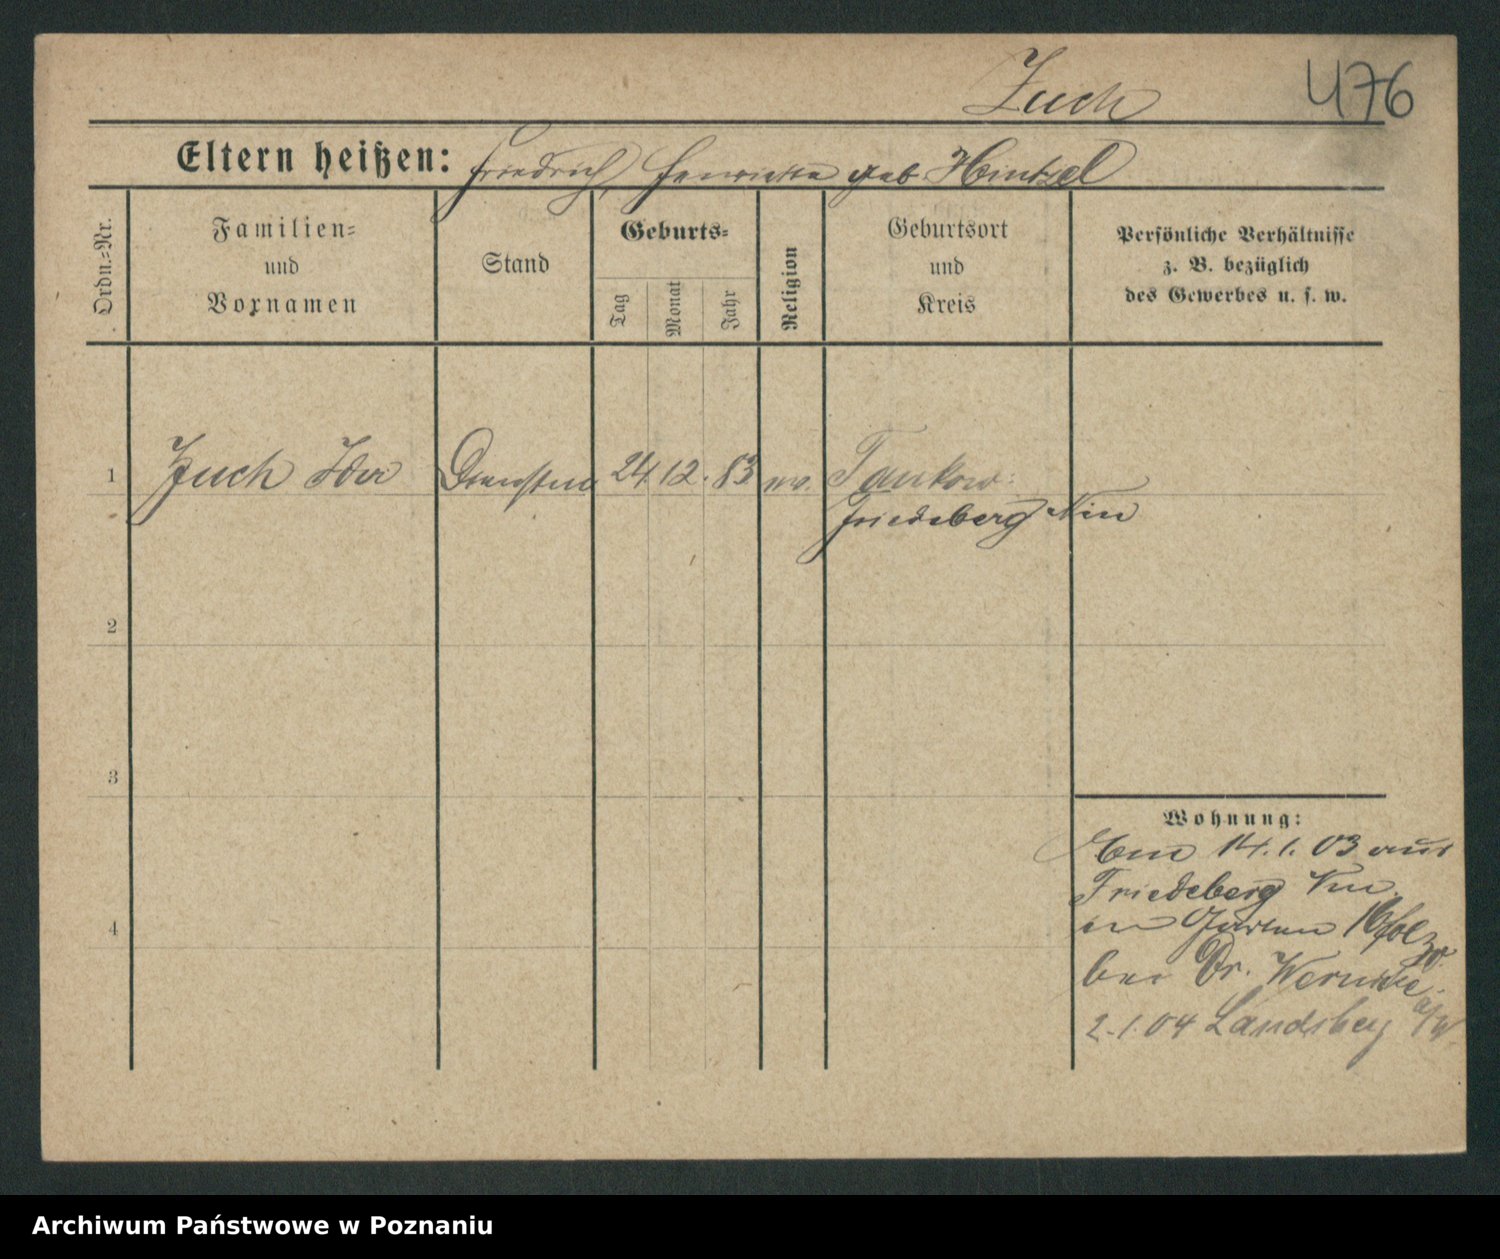 Zuch
476
Eltern heißen: Friedrich, Henriette geb Hintzel
Ordn.=Nr.
Familien=
und
Vornamen
Stand
Geburts=
Tag
Monat
Jahr
Religion
Geburtsort
und
Kreis
Persönliche Verhältnisse
z. B. bezüglich
des Gewerbes u. s. w.
1 Zuch Ida 24 12. 83 ev. Tankow
Friedeberg Nm
2
3
4
Wohnung:
14.1.03 aus
Friedeberg Nm
bei Dr. Wernicke.
2.1.04 Landsberg a/W
Archiwum Państwowe w Poznaniu